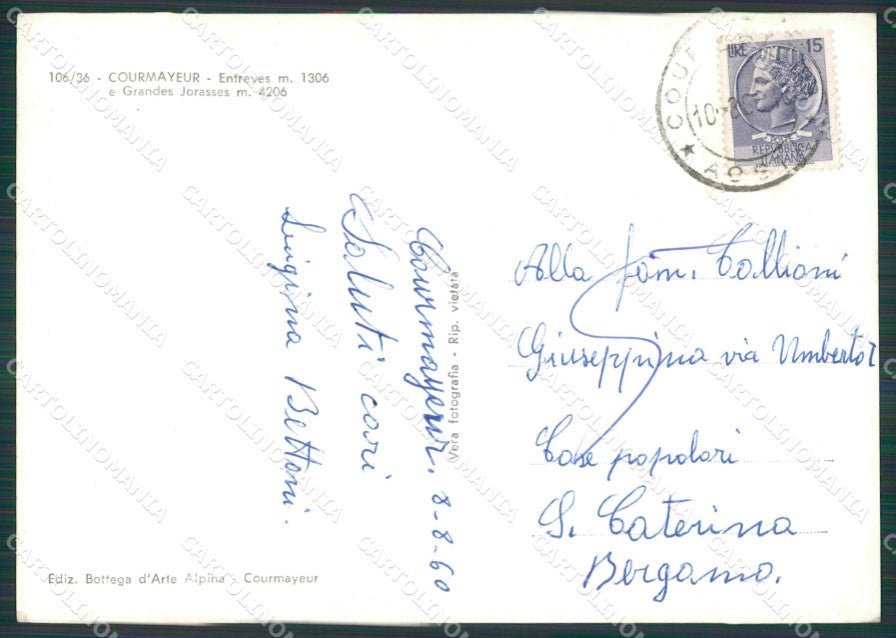 106/36 - COURMAYEUR - Entreves m. 1306
e Grandes Jorasses m. 4206
LIRE 15
REPUBBLICA
ITALIANA
AOSTA
Courmayeur, 8-8-60
Saluti cari
Luigina Bettoni.
Vera fotografia - Rip. vietata
Alla fam.
Giuseppina via Umberto I
Case popolari
S. Caterina
Bergamo.
Ediz. Bottega d'Arte Alpina - Courmayeur
CARTOLINOMANIA